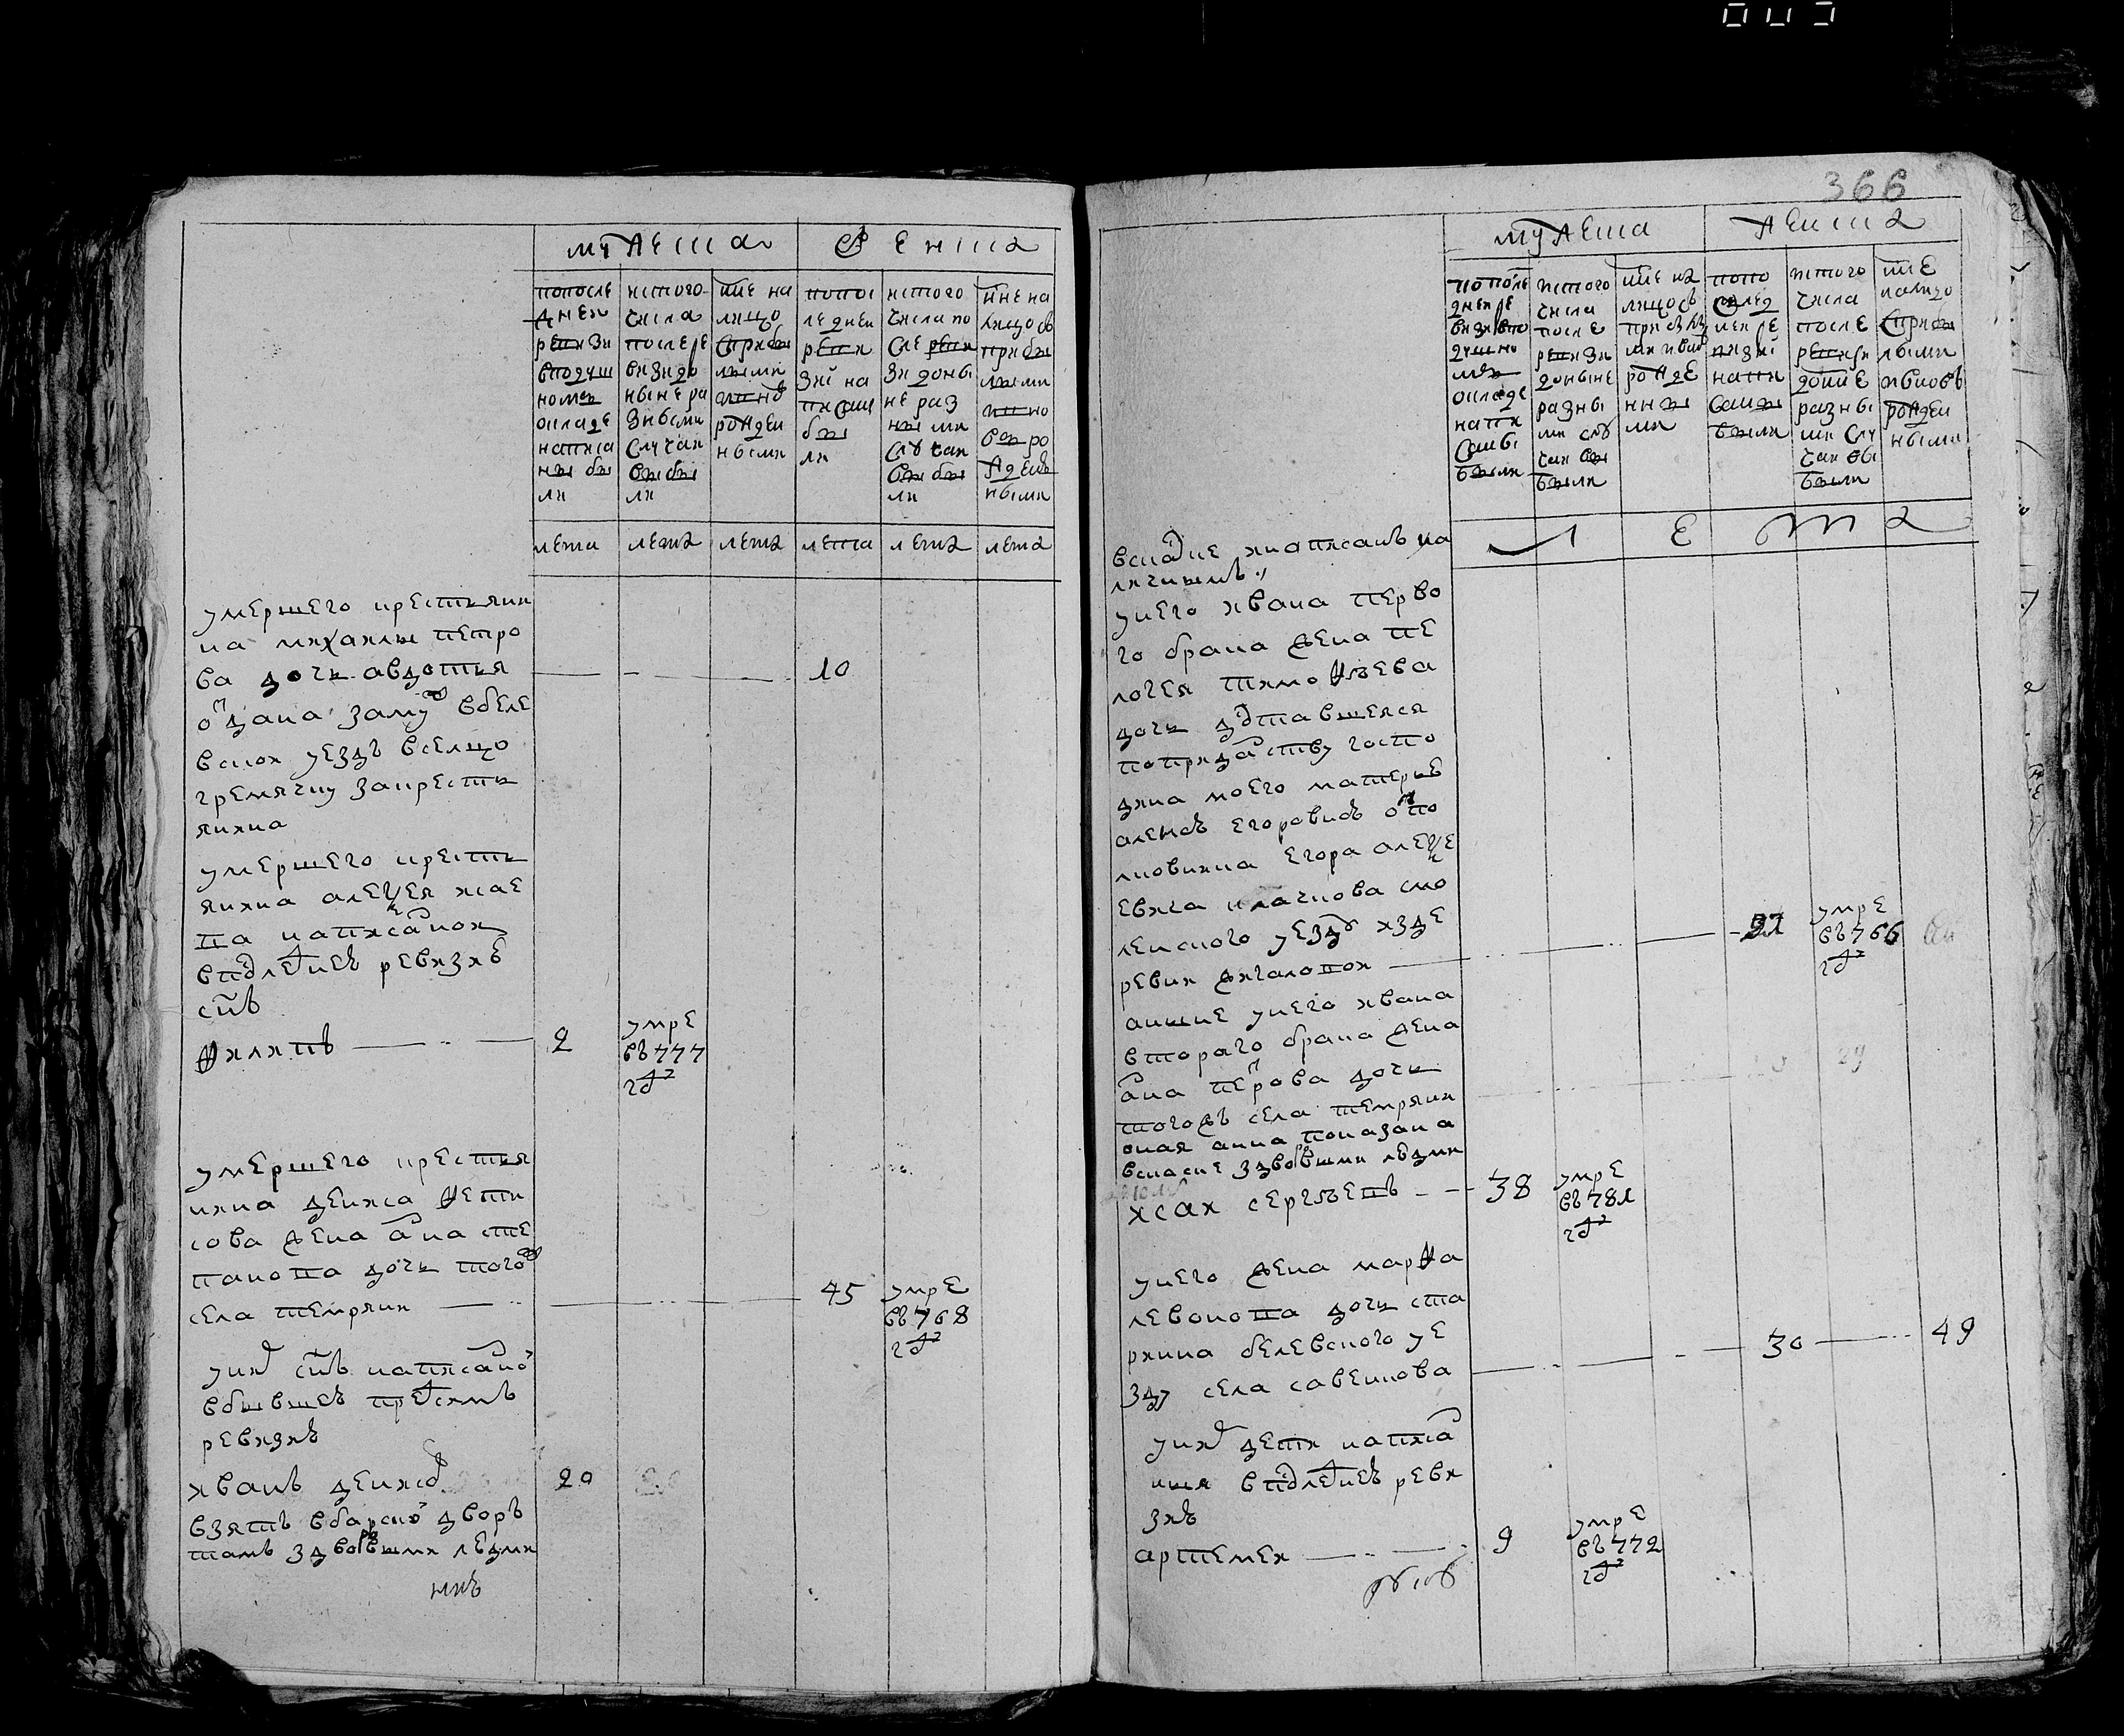 366
мужеска
женска
попосле
днеи
ревизи
вподуш
номъ
окладе
написа
ны бы
ли
истого
числа
послере
визидо
ныне ра
зными
случая
вы бы
ли
ныне на
лицо
сприбы
лыми
рожден
ными
попос
ледней
реви
зиі на
писан
бы
ли
истого
числа по
сле реви
зи доны
не раз
ны ми
случая
вы бы
ли
ныне на
лицо съ
прибы
лыми
вно ро
жден
ными
лета лета лета лета лета лета
умершего крестьяни
на михаилы петро
ва дочь авдотья
10
о͏̾дана замуж вбеле
вскои уездъ вселцо
гремячку закресть
янина
умершего кресть
янина алексея исае
ва написанои
впоследнеи ревизиі
сынъ
филипъ
2
умре
въ 777
годе
умершего крестья
нина дениса фети
сова жена анна сте
панова дочь тогож
села темряни
45
умре
въ 768
годе
уних сынъ написанои
вбывшеи пред симъ
ревизиі
иванъ денисов
20
взятъ вбарскои дворъ
тамъ здворовыми людми
мужеска
женска
попосле
дней ре
визи впо
душно
мъ
окладе
напи
саны
были
истого
числа
после
ревизи
доныне
разны
ми слу
чаи вы
были
ныне на
лицо съ
рожде
нны
ми
попо
след
ней ре
визиі
напи
саны
были
истого
числа
после
ревизи
доныне
разны
ми слу
чаи вы
были
ныне
налицо
сприбы
лыми
ивновь
рожден
ными
лета
вскаске инаписанъ на
личнымъ
унего ивана перво
го брака жена пе
лагея тимофеева
дочь доставшеися
поприданству госпо
дина моего матерью
аленою егоровною от по
лковника егора алексе
евича клачкова смо
ленского уезду изде
ревни жигаловои
37
умре
въ 766
годе
аныне унего ивана
втораго брака жена
анна петрова дочь
тогожъ села темряни
оная анна показана
вскаске здворовыми людми
исаи сергеевъ
38
умре
въ 781
годе
унего жена марфа
левонова дочь ста
ринна белевского уе
зду села савенкова
30
49
уних дети написа
нныя впоследнеи реви
зиі
артемеи
9
умре
въ 772
годе